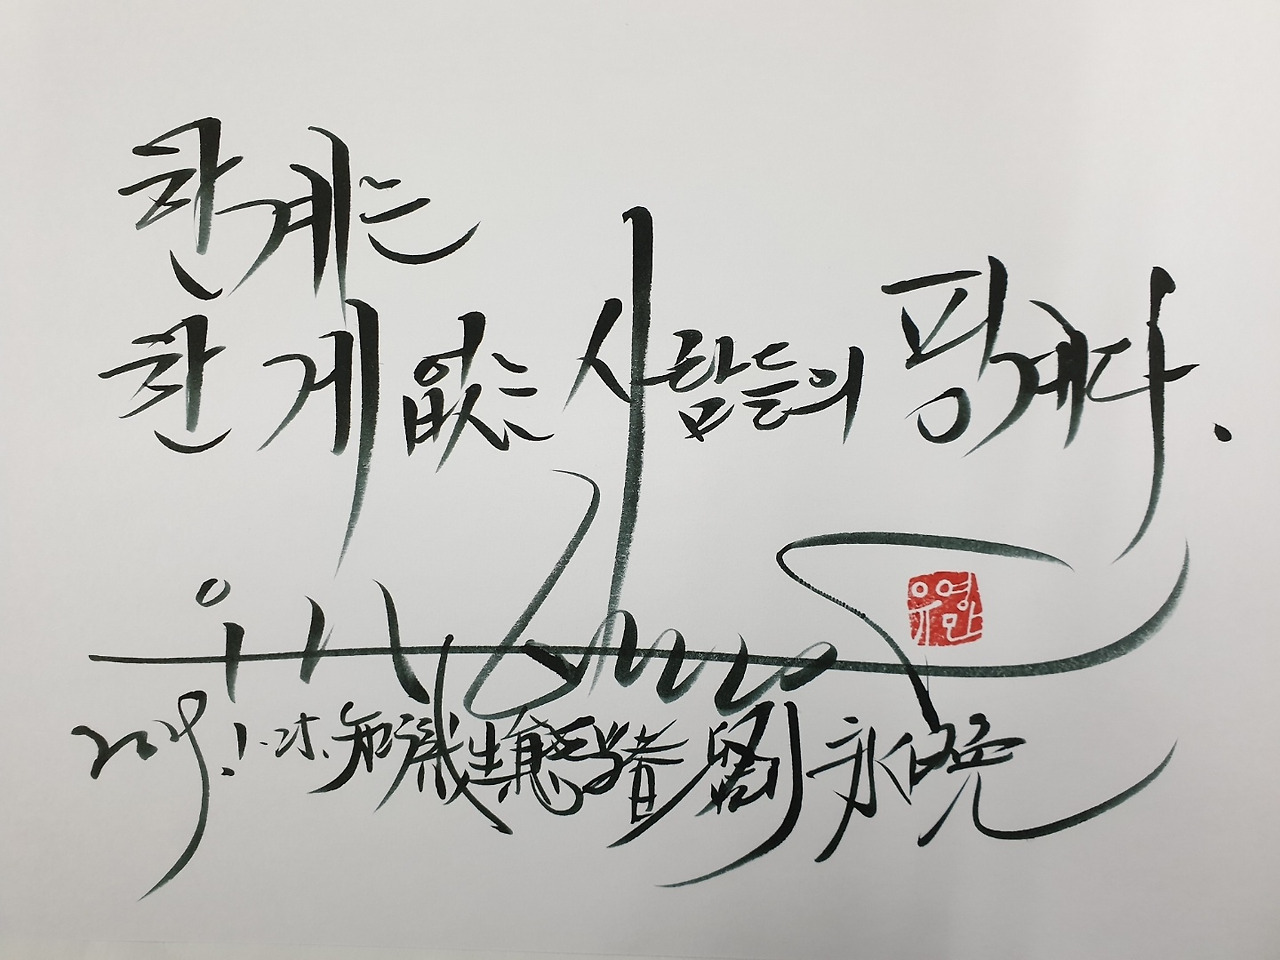 한계는
한 게 없는 사람들의 핑계다.
2019. 1. 25. 知識生態學者 劉永晩
유영만